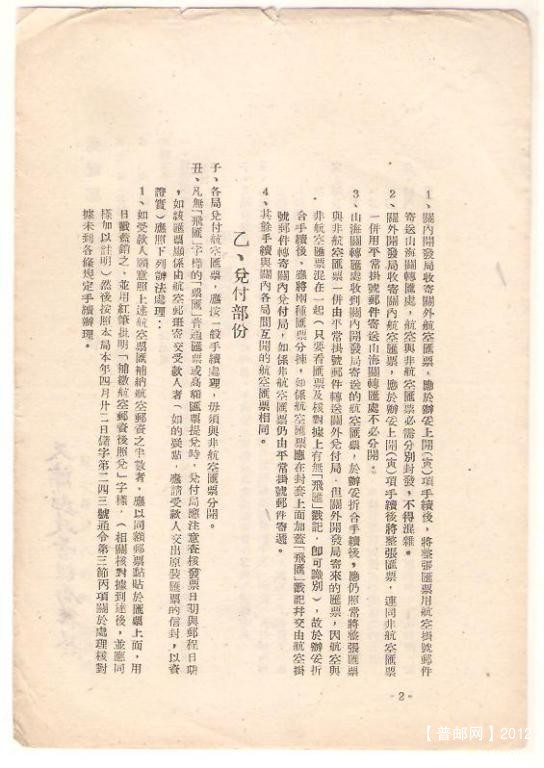 1、關內開發局收寄關外航空匯票，應於辦妥上開(寅)項手續後，將整張匯票用航空掛號郵件
寄送山海關轉匯處，航空與非航空匯票必需分別封發，不得混雜。
2、關外開發局收寄關內航空匯票，應於辦妥上開(寅)項手續後將整張匯票，連同非航空匯票
一併用平常掛號郵件寄送山海關轉匯處不必分開。
3、山海關轉匯處收到關內開發局寄送的航空匯票，於辦妥折合手續後，應仍照常將整張匯票
與非航空匯票一併由平常掛號郵件轉送關外兌付局，但關外開發局寄來的匯票，因航空與
非航空匯票混在一起(只要看匯票及核對據上有無「飛匯」戳記，卽可識別)，故於辦妥折
合手續後，應將兩種匯票分揀，如係航空匯票應在封套上面加蓋「飛匯」戳記幷交由航空掛
號郵件轉寄關內兌付局，如係非航空匯票仍由平常掛號郵件寄遞。
4、其餘手續與關內各局間互開的航空匯票相同。
乙、兌付部份
子、各局兌付航空匯票，應按一般手續處理，毋須與非航空匯票分開。
丑、凡無「飛匯」字樣的「票匯」普通匯票或高額匯票提兌時，兌付局應注意查核發票日期與郵程日期
，如該匯票顯係由航空郵班寄交受款人者(如的疑點，應請受款人交出原裝匯票的信封，以資
證實)應照下列辦法處理：
1、如受款人願意照上述航空票匯補納航空郵資之半數者，應以同額郵票黏貼於匯票上面，用
日戳蓋銷之，並用紅筆批明「補繳航空郵資後照兌」字樣，(相關核對據到達後，並應同
樣加以註明)然後按照本局本年四月廿二日儲字第二四三號通令第三節丙項關於處理核對
據未到各條規定手續辦理。
-2-
【普邮网】2012